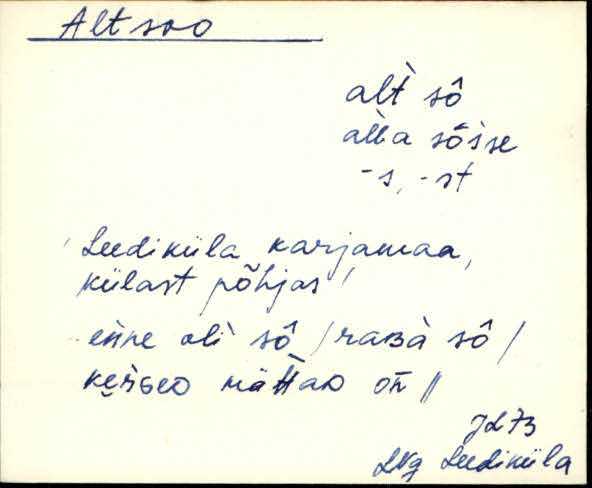 Altsoo
alt̀ sô
alla sô̭sse
-s, -st
Leediküla karjamaa,
külast põhjas
enne oli sô / raʙà sô /
mättaᴅ oń //
JL73
LNg Leediküla